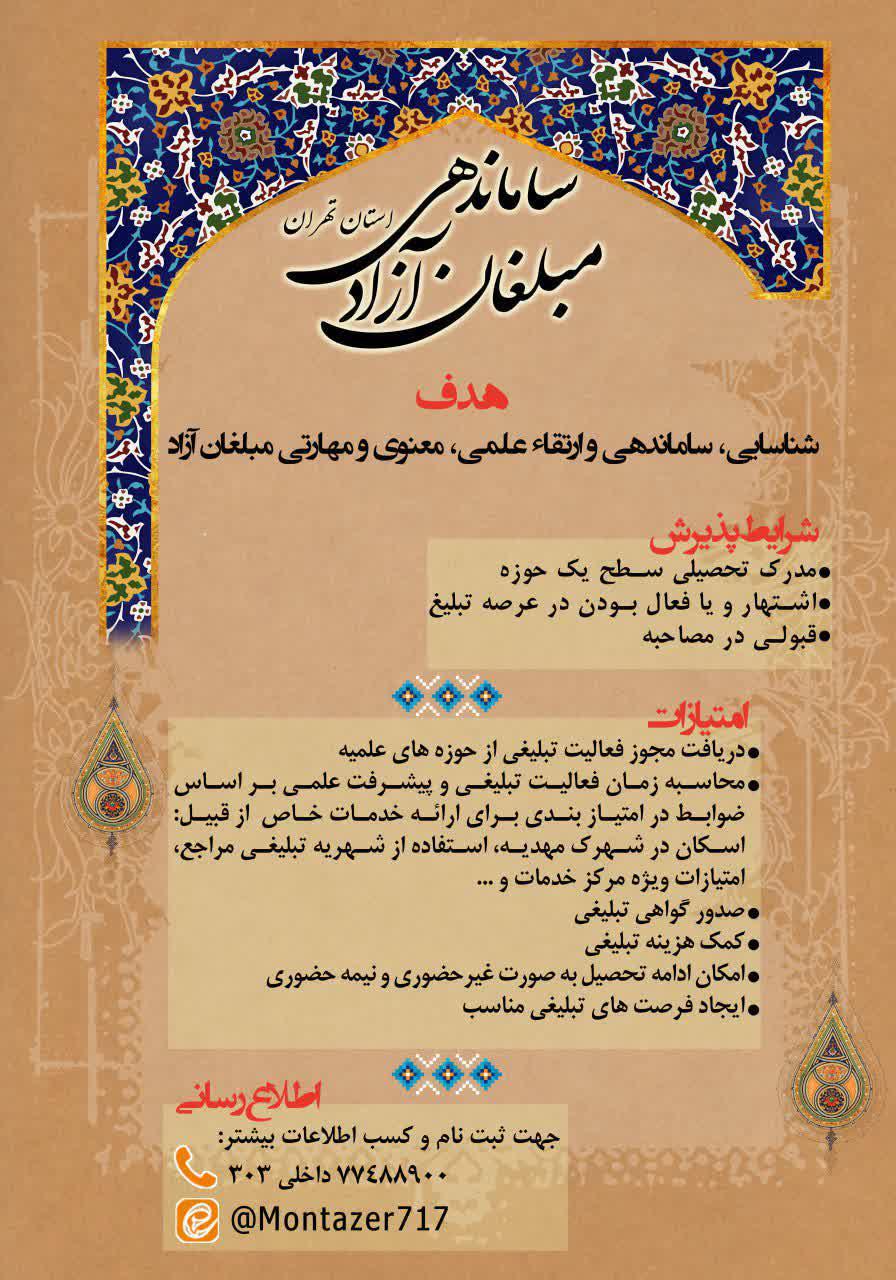 ساماندهی
استان تهران
مبلغان آزاد
هدف
شناسایی، ساماندهی و ارتقاء علمی، معنوی و مهارتی مبلغان آزاد
شرایط پذیرش
•مدرک تحصیلی سطح یک حوزه
•اشتهار و یا فعال بودن در عرصه تبلیغ
•قبولی در مصاحبه
امتیازات
•دریافت مجوز فعالیت تبلیغی از حوزه های علمیه
•محاسبه زمان فعالیت تبلیغی و پیشرفت علمی بر اساس
ضوابط در امتیاز بندی برای ارائه خدمات خاص از قبیل:
اسکان در شهرک مهدیه، استفاده از شهریه تبلیغی مراجع،
امتیازات ویژه مرکز خدمات و ...
•صدور گواهی تبلیغی
•کمک هزینه تبلیغی
•امکان ادامه تحصیل به صورت غیرحضوری و نیمه حضوری
•ایجاد فرصت های تبلیغی مناسب
اطلاع رسانی
جهت ثبت نام و کسب اطلاعات بیشتر:
۷۷۴۸۸۹۰۰ داخلی ۳۰۳
@Montazer717